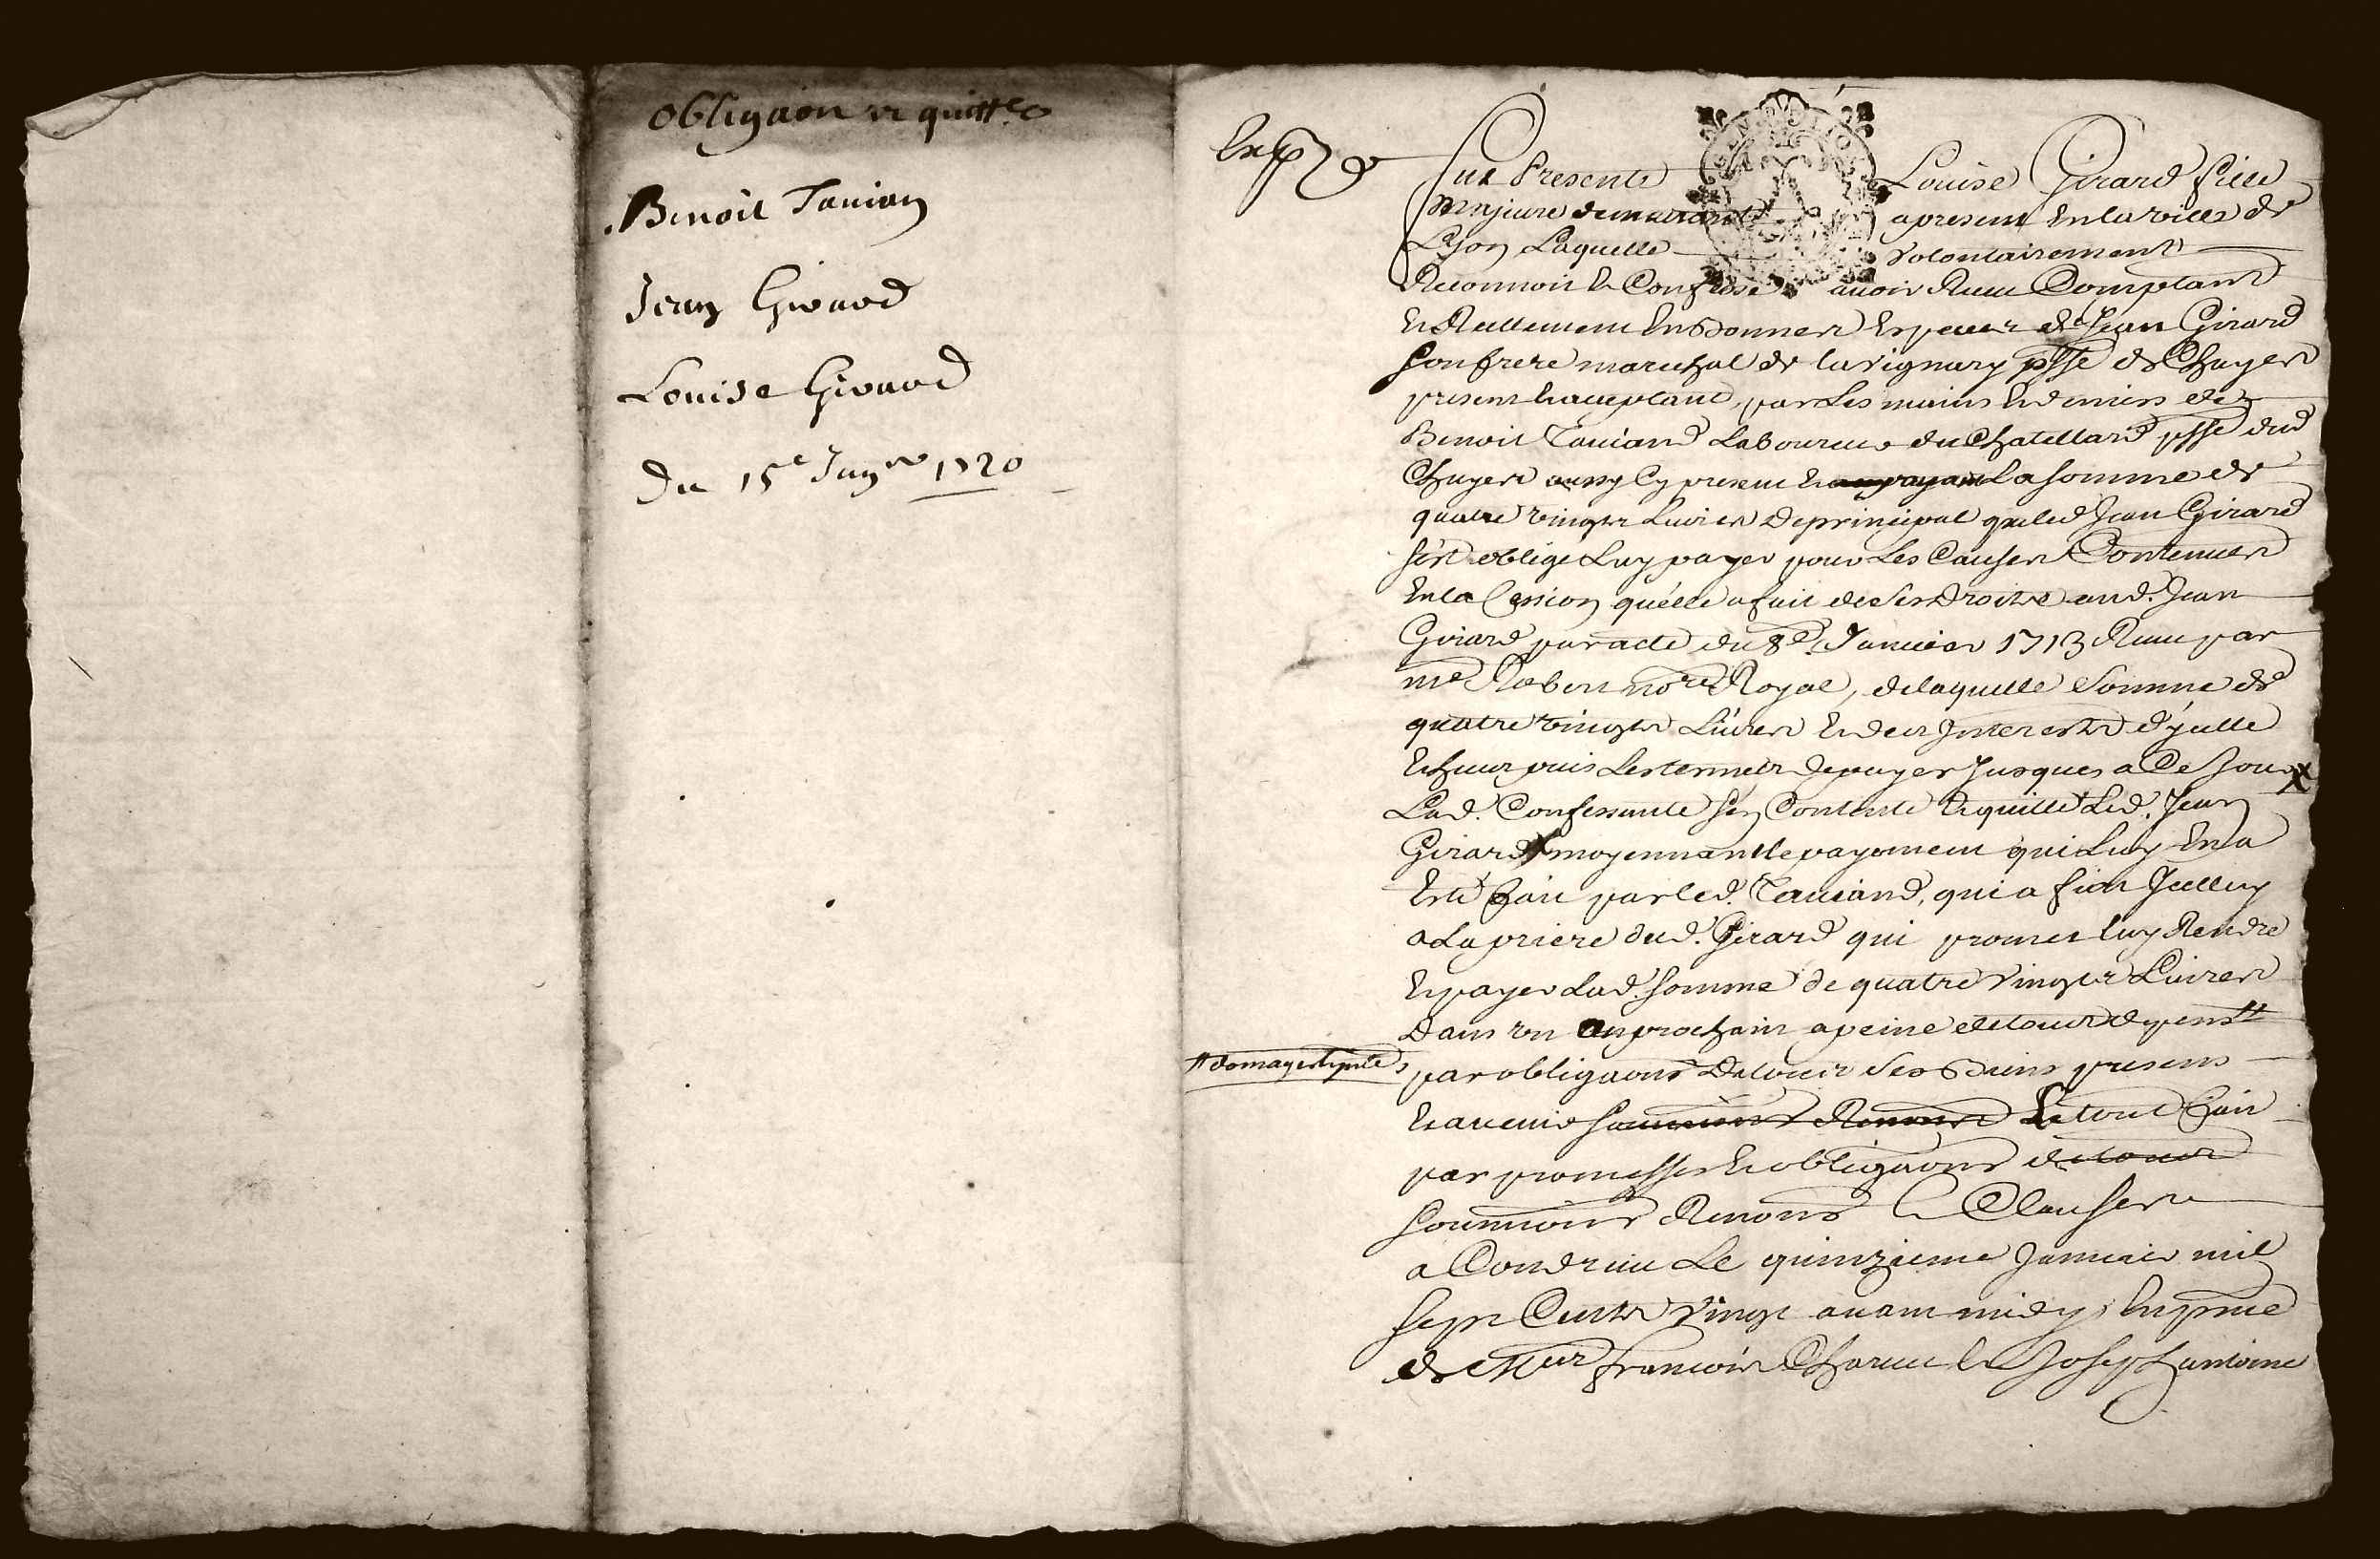 Obligaon et quitt.e
Benoit Tavian
Jean Girard
Louise Girard
Du 15e Janv.er 1720
Exp.
Fut Presente Louise Girard fille
Majeure demeurante apresent En la ville de
Lyon Laquelle volontairement
Reconnoit Et Confesse avoir Receu Comptant
Et Reellement En Donner Et payer de Jean Girard
son frere marechal de la vignary psse de Chuyer
present Et acceptant, par Les mains Et deniers de
Benoit Taviand Laboureur du Chatellard psse dud
Chuyer aussy Cy present La somme de
quatre vingts Livres De principal que led Jean Girard
s'est obligé Luy payer pour Les Causes Contenues
En la Cession qu'elle a fait de Ses Droits aud. Jean
Girard par acte du 8e Janvier 1713 Receu par
me Robert nore Royal, de laquelle Somme de
quatre vingts Livres Et des Interests d'ycelle
Echeus puis Les termes de payer Jusques a Ce Jour X
Lad. Confessante s'en Contente Et quitte Led. Jean
Girard X moyennant le payement qui Luy En a
Eté fait par led. Taviand, qui a fait Icelluy
a La priere dud. Girard qui promet luy Rendre
Et payer Lad. somme de quatre vingts Livres
Dans un an prochain a peine de tous depens #
# domages
par obligaons De tous Ses Biens presens
Et avenir Le tout fait
par promesses Et obligaons de tous
soumions Renons Et Clauses
a Condrieu Le quinzieme Janvier mil
sept Cents vingt avant midy, En pnce
de François Et Joseph antoine